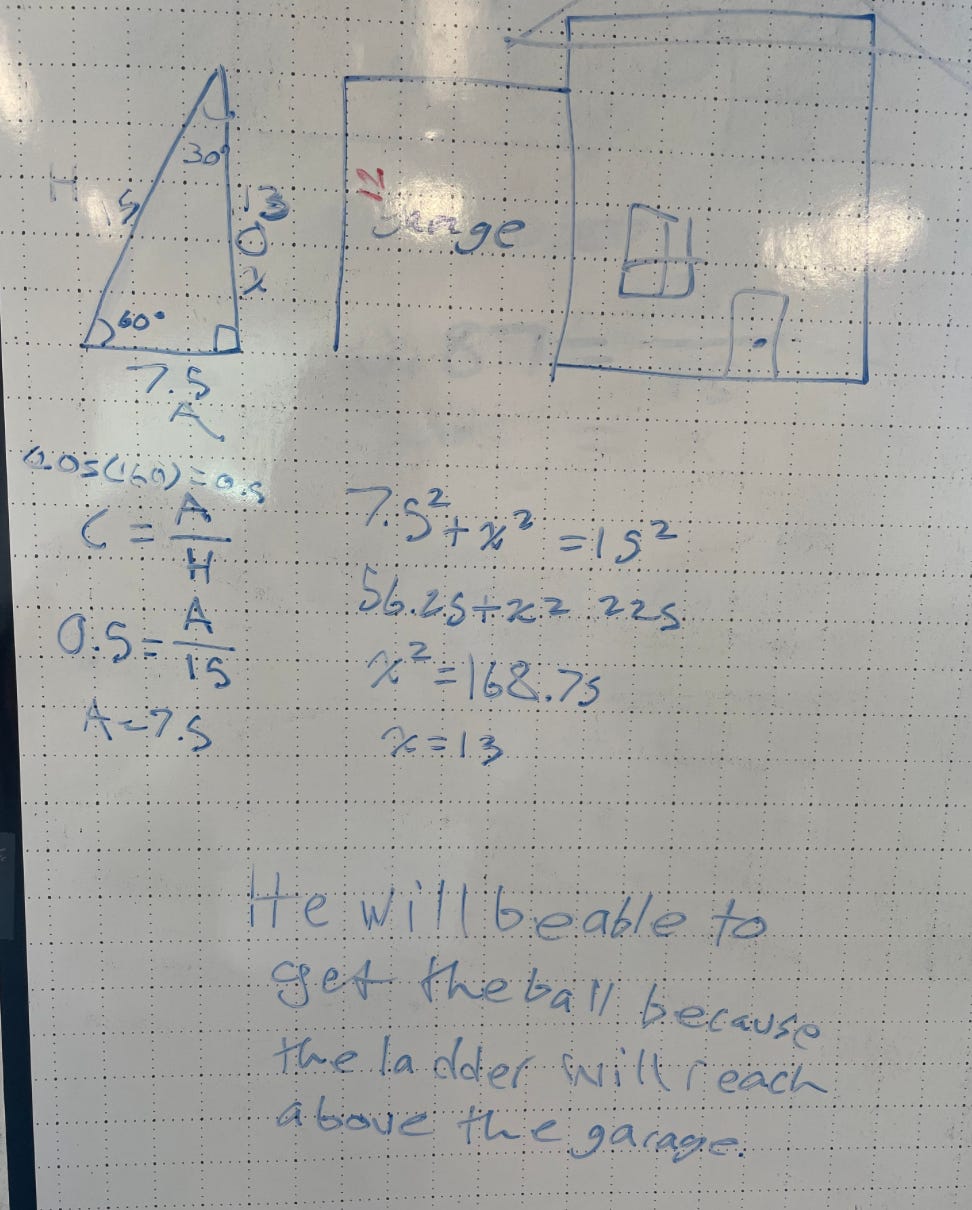 30°
H
15
13
O
x
60°
7.5
A
12
cos(60)=0.5
C = A
H
0.5 = A
15
A=7.5
7.5² + x² = 15²
56.25+x² 225
x²=168.75
x=13
He will be able to
get the ball because
the ladder will reach
above the garage.